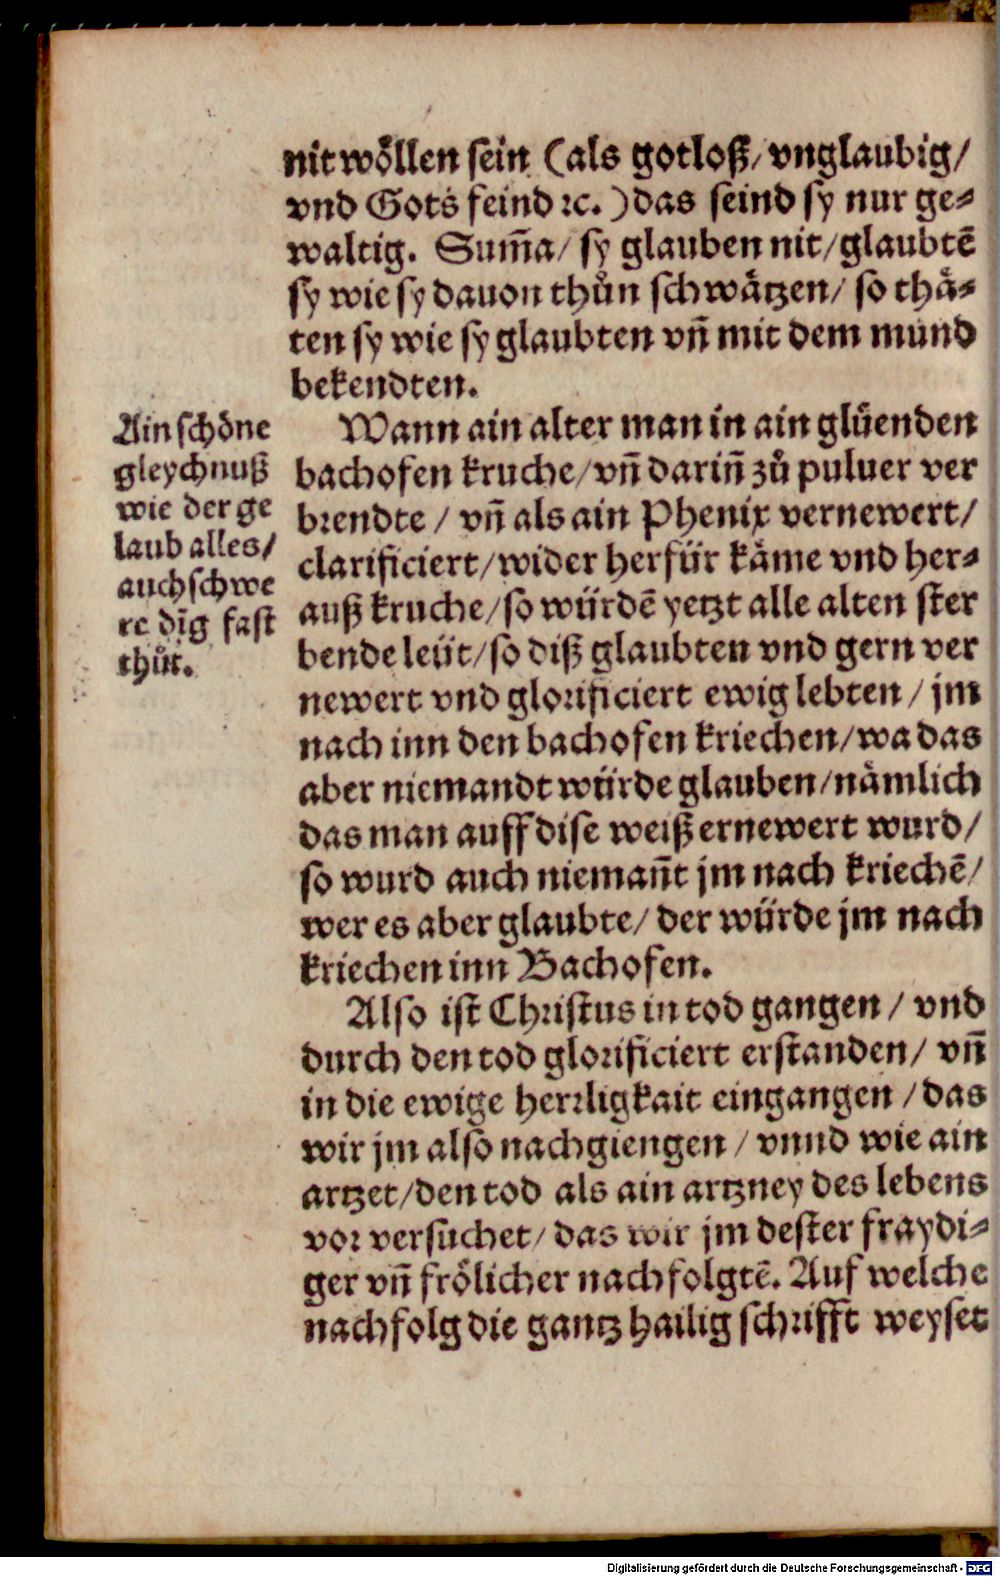 nit wöllen sein (als gotloß/ vnglaubig/
vnd Gots feind ꝛc.) das seind sy nur ge⸗
waltig. Sum̃a/ sy glauben nit/ glaubtẽ
sy wie sy dauon thůn schwätzen/ so thä⸗
ten sy wie sy glaubten vñ mit dem mund
bekendten.
Ain schöne
gleychnuß
wie der ge
laub alles/
auch schwe
re dĩg fast
thůt.
Wann ain alter man in ain glüenden
bachofen kruche/ vñ dariñ zů puluer ver
brendte / vñ als ain Phenix vernewert/
clarificiert/ wider herfür käme vnd her⸗
auß kruche/ so würdẽ yetzt alle alten ster
bende leüt/ so diß glaubten vnd gern ver
newert vnd glorificiert ewig lebten / jm
nach inn den bachofen kriechen/ wa das
aber niemandt würde glauben/ nämlich
das man auff dise weiß ernewert wurd/
so wurd auch niemañt jm nach kriechẽ/
wer es aber glaubte/ der würde jm nach
kriechen inn Bachofen.
Also ist Christus in tod gangen / vnd
durch den tod glorificiert erstanden/ vñ
in die ewige herrligkait eingangen / das
wir jm also nachgiengen / vnnd wie ain
artzet/ den tod als ain artzney des lebens
vor versuchet/ das wir jm dester fraydi⸗
ger vñ frölicher nachfolgtẽ. Auf welche
nachfolg die gantz hailig schrifft weyset
Digitalisierung gefördert durch die Deutsche Forschungsgemeinschaft - DFG